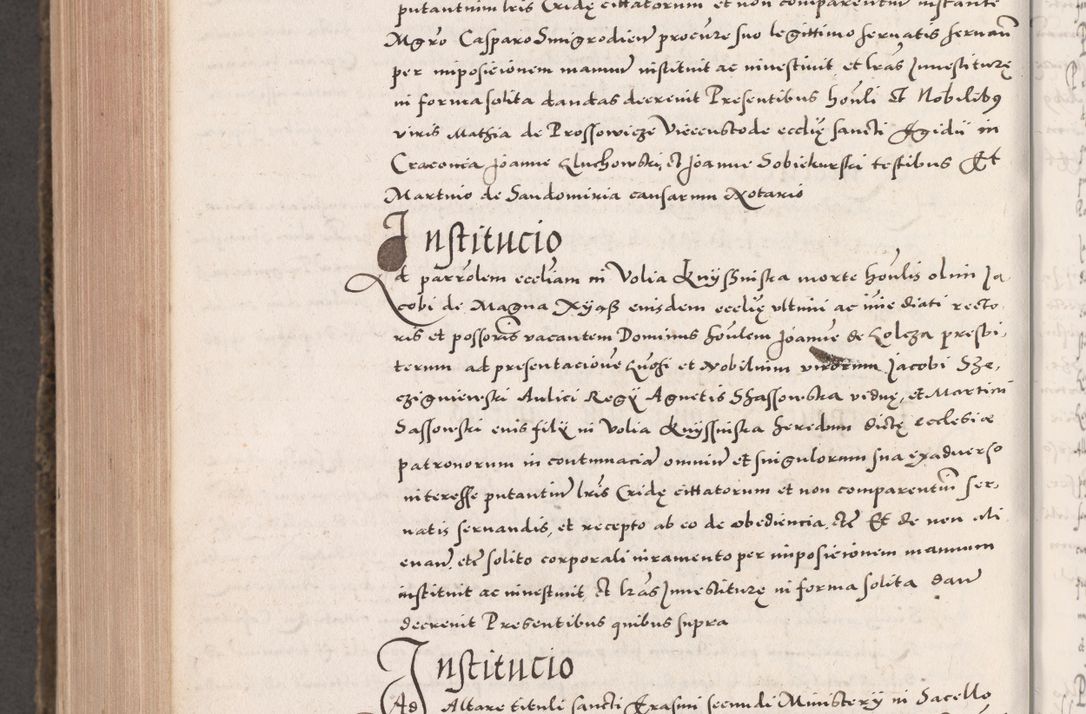 putantium lris Cridę cittatorum et non comparentium instante
Mgro Casparo Smigrodien procure suo legittimo servatis servan
per imposicionem manuum instituit ac investivit et lras Investiturę
in forma solita dandas decrevit Presentibus houli et Nobilibus
viris Mathia de Prossowicze Vicecustode ecclię sancti Egidii in
Cracovia Joanne Kluchowski et Joanne Sobiekurski testibus Et
Martino de Sandomiria causarum Notario
Institucio
Ad parrolem eccliam in Volia Knyssinska morte houlis olim Ja
cobi de Magna Xyąsz eiusdem ecclię ultimi ac imediati recto
ris et possoris vacantem Dominus houlem Joannem de Koleza presbi
terum ad presentacionem Gnosi et Nobilium virorum Jacobi Sze
czigniewski Aulici Regii Agnetis Sassowska viduę, et Martini
Sassowski eius filii in Volia Knyssinska heredum dictę ecclesiæ
patronorum in contumaciam omnium et singulorum sua exadverso
interesse putantium lris Cridę cittatorum et non comparentium ser
vatis servandis, et recepto ab eo de obediencia etc Et de non ali
enan. etc solito corporali iuramento per imposicionem manuum
instituit ac investivit et lras Investiturę in forma solita dan
decrevit Presentibus quibus supra
Institucio
Ad Altare tituli sancti Erasmi secundi Ministerii in Sacello